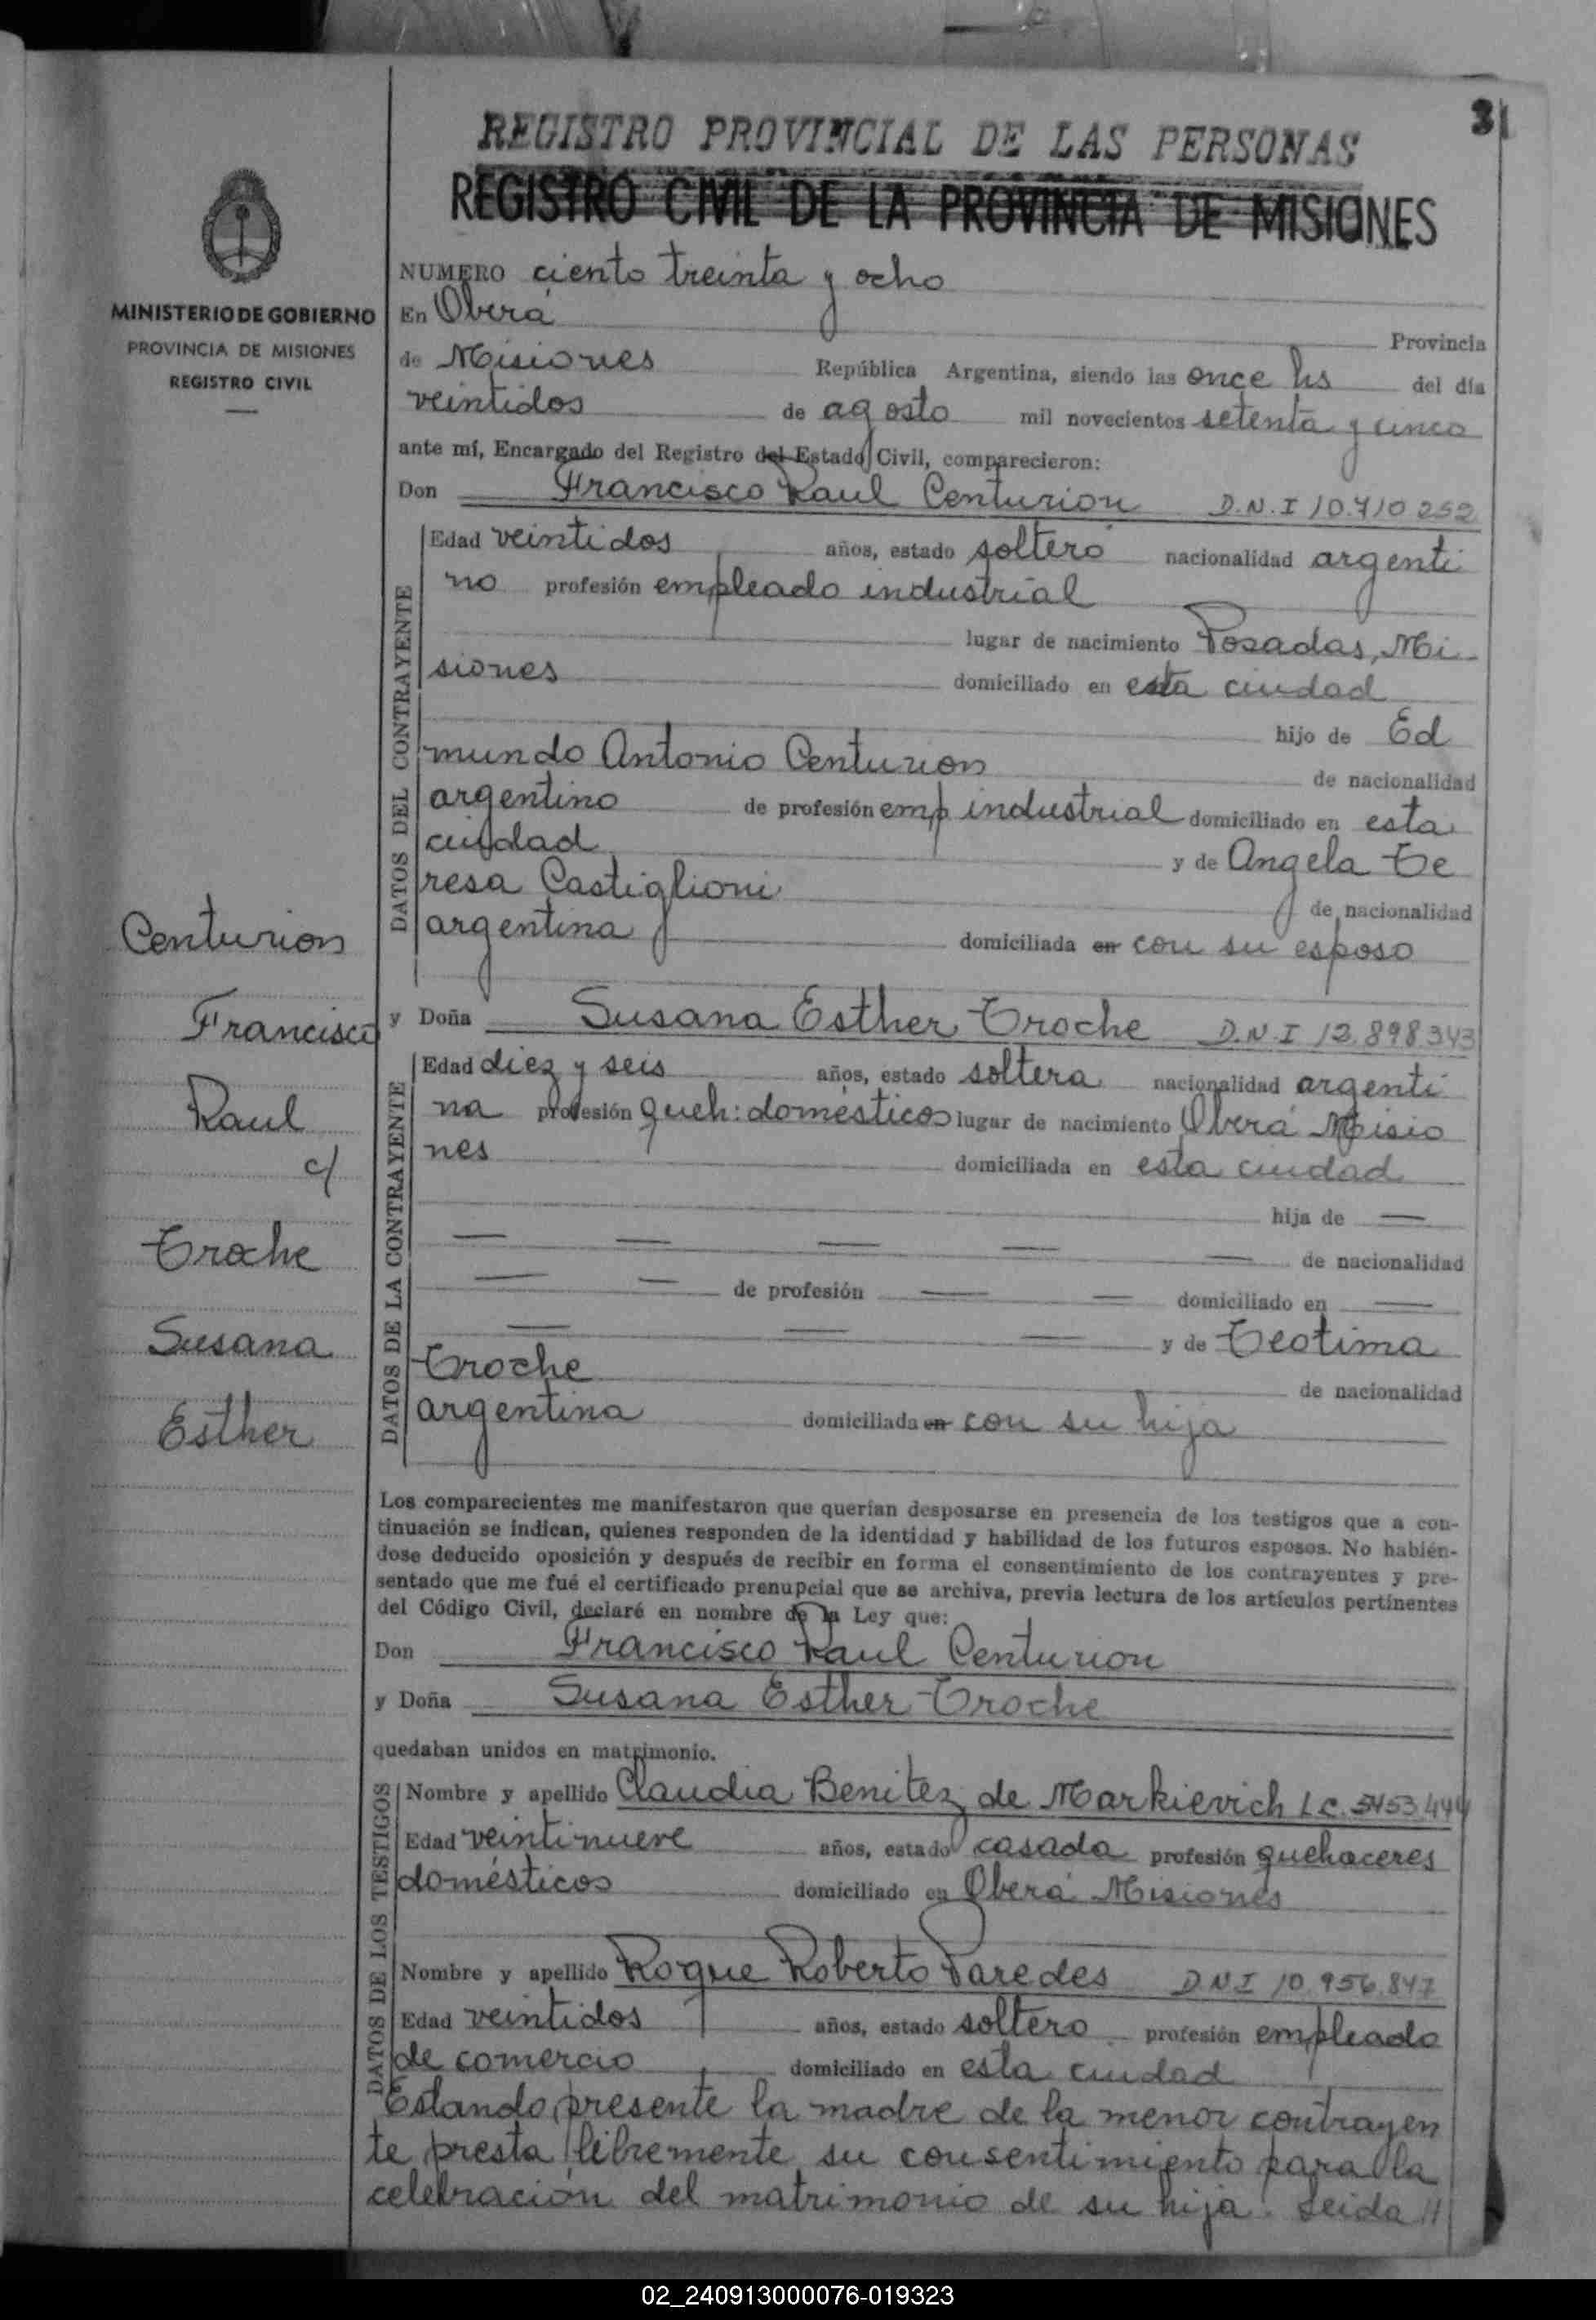 31
REGISTRO PROVINCIAL DE LAS PERSONAS
REGISTRO CIVIL DE LA PROVINCIA DE MISIONES
MINISTERIO DE GOBIERNO
PROVINCIA DE MISIONES
REGISTRO CIVIL
NUMERO ciento treinta y ocho
En Oberá Provincia
de Misiones República Argentina, siendo las once hs del día
veintidos de agosto mil novecientos setenta y cinco
ante mí, Encargado del Registro del Estado Civil, comparecieron:
Don Francisco Raul Centurion D.N.I 10.710 252
DATOS DEL CONTRAYENTE
Edad veintidos años, estado soltero nacionalidad argenti
no profesión empleado industrial
lugar de nacimiento Posadas, Mi
siones domiciliado en esta ciudad
hijo de Ed
mundo Antonio Centurion de nacionalidad
argentino de profesión emp industrial domiciliado en esta
ciudad y de Angela Te
resa Castiglioni de nacionalidad
argentina domiciliada en con su esposo
Centurion
Francisco
Raul
c/
Troche
Susana
Esther
y Doña Susana Esther Troche D.N.I 12.898.343
DATOS DE LA CONTRAYENTE
Edad diez y seis años, estado soltera nacionalidad argenti
na profesión queh: domésticos lugar de nacimiento Oberá Misio
nes domiciliada en esta ciudad
hija de —
— — — — — de nacionalidad
— — de profesión — — domiciliado en —
— — — y de Teotima
Troche de nacionalidad
argentina domiciliada en con su hija
Los comparecientes me manifestaron que querían desposarse en presencia de los testigos que a con-
tinuación se indican, quienes responden de la identidad y habilidad de los futuros esposos. No habién-
dose deducido oposición y después de recibir en forma el consentimiento de los contrayentes y pre-
sentado que me fué el certificado prenupcial que se archiva, previa lectura de los artículos pertinentes
del Código Civil, declaré en nombre de la Ley que:
Don Francisco Raul Centurion
y Doña Susana Esther Troche
quedaban unidos en matrimonio.
DATOS DE LOS TESTIGOS
Nombre y apellido Claudia Benitez de Markievich L.C. 5453.444
Edad veintinueve años, estado casada profesión quehaceres
domésticos domiciliado en Oberá Misiones
Nombre y apellido Roque Roberto Paredes D.N.I 10.956.847
Edad veintidos años, estado soltero profesión empleado
de comercio domiciliado en esta ciudad
Estando presente la madre de la menor contrayen
te presta libremente su consentimiento para la
celebración del matrimonio de su hija. Leida //
02_240913000076-019323